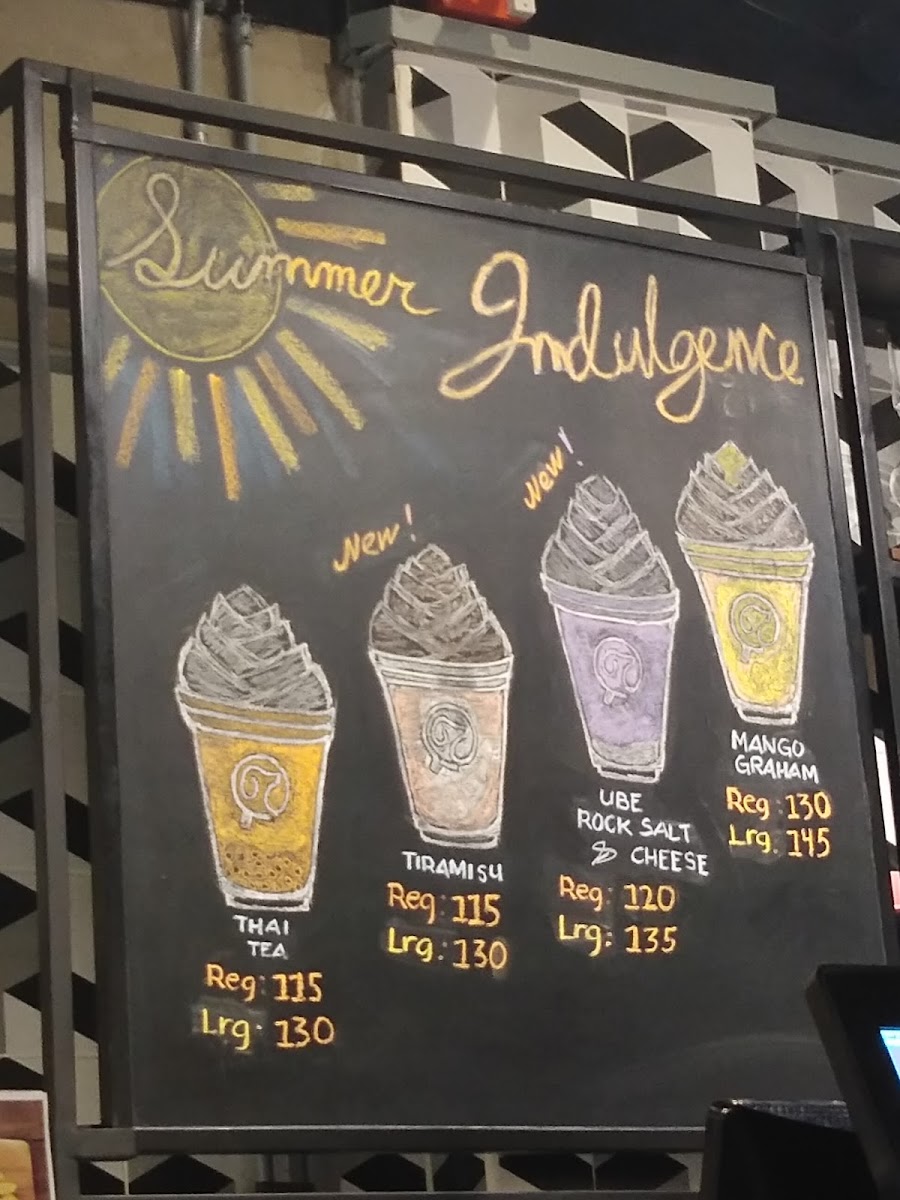 Summer Indulgence
New!
New!
THAI
TEA
Reg: 115
Lrg: 130
TIRAMISU
Reg: 115
Lrg: 130
UBE
ROCK SALT
& CHEESE
Reg: 120
Lrg: 135
MANGO
GRAHAM
Reg: 130
Lrg: 145